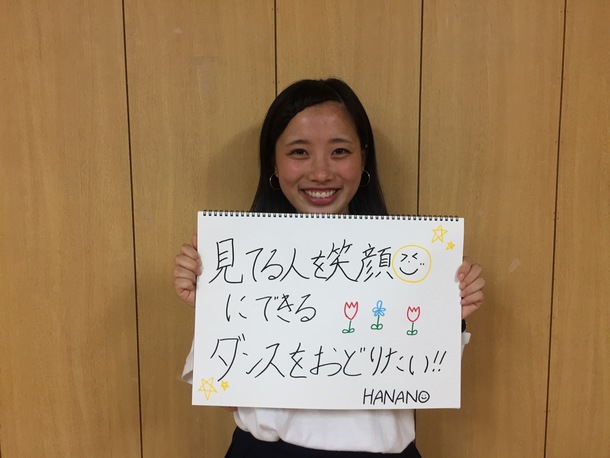 見てる人を笑顔
にできる
ダンスをおどりたい!!
HANANO